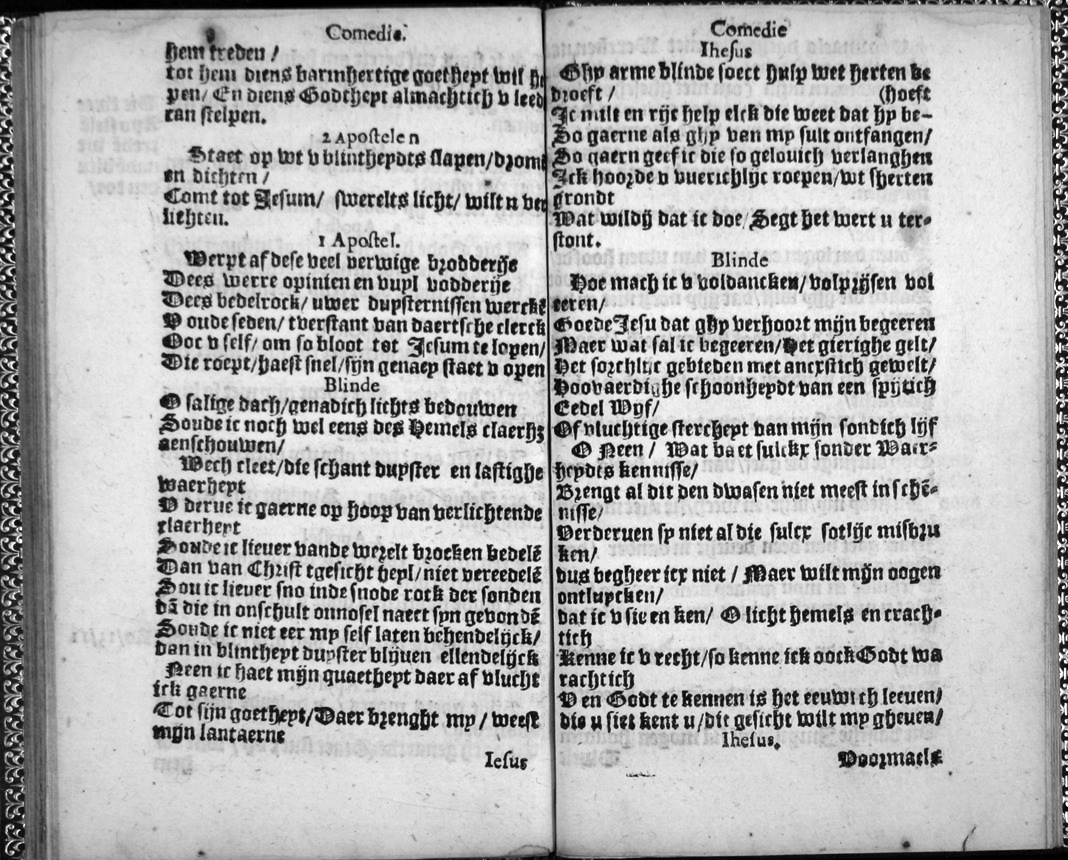 Comedie.
hem treden /
tot hem diens barmhertige goetheyt wil he
pen/ En diens Godtheyt almachtich v leed
can stelpen.
2 Apostelen
Staet op wt v blintheydts slapen/drome
en dichten /
Comt tot Jesum/ swerelts licht/ wilt u ver
liehten.
1 Apostel.
Werpt af dese veel verwige brodderije
Dees werre opinien en vuyl vodderije
Dees bedelrock/ uwer duysternissen wercke
V oude seden/ tverstant van daertsche clerck
Ooc v self/ om so bloot tot Jesum te lopen/
Die roept/haest snel/sijn genaep staet v open
Blinde
O salige dach/genadich lichts bedouwen
Soude ic noch wel eens des Hemels claerhz
aenschouwen/
Wech cleet/die schant duyster en lastighe
waerheyt
V derue ic gaerne op hoop van verlichtende
claerheyt
Soude ic liever vande werelt brocken bedelē
Dan van Christ tgesicht heyl/niet vereedelē
Sou ic liever sno inde snode rock der sonden
dā die in onschult onnosel naect syn gevondē
Soude ic niet eer my self laten behendelijck/
dan in blintheyt duyster blijuen ellendelijck
Neen ic haet mijn quaetheyt daer af vlucht
ick gaerne
Tot sijn goetheyt/Daer brenght my / weest
mijn lantaerne
Iesus
Comedie
Ihesus
Ghy arme blinde soect hulp wet herten be
droeft / (hoeft
Ic milt en rijc help elck die weet dat hy be-
So gaerne als ghy van my sult ontfangen/
So gaern geef ic die so gelouich verlanghen
Ick hoorde v vuerichlijc roepen/wt sherten
grondt
Wat wildy dat ic doe/Segt het wert u ter-
stont.
Blinde
Hoe mach ic v voldancken/volprijsen vol
eeren/
Goede Jesu dat ghy verhoort mijn begeeren
Maer wat sal ic begeeren/Het gierighe gelt/
Het sorchlijc gebieden met ancxstich gewelt/
Hoovaerdighe schoonheydt van een spijtich
Eedel Wyf/
Of vluchtige sterckeyt van mijn sondich lijf
O Neen / Wat baet sulckx sonder Waer-
heydts kennisse/
Brengt al dit den dwasen niet meest in schē-
nisse/
Verderuen sy niet al die sulcx sotlijc misbru
ken/
dus begheer icx niet / Maer wilt mijn oogen
ontluycken/
dat ic v sie en ken/ O licht hemels en crach-
tich
Kenne ic v recht/so kenne ick oock Godt wa
rachtich
V en Godt te kennen is het eeuwich leeuen/
die u siet kent u/dit gesicht wilt my gheuen/
Ihesus.
Voormaels